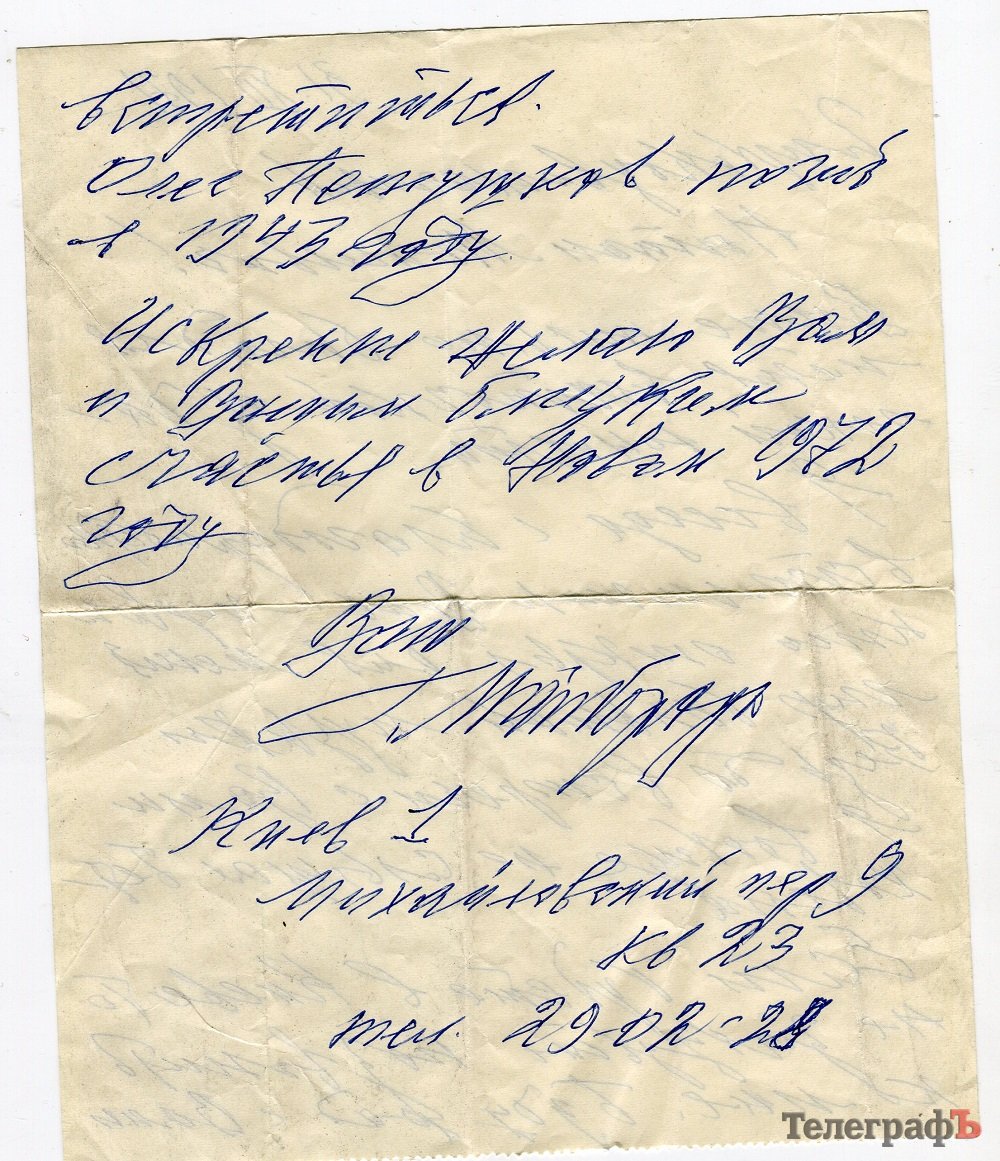 встретиться.
Олег погиб
в 1943 году.
Искренне желаю Вам
и Вашим близким
счастья в Новом 1972
году
Ваш
Г. Майборода
Киев 1
Михайловский пер 9
кв 23
тел. 29-02-28
ТелеграфЪ